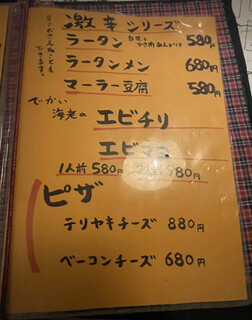 激辛シリーズ
辛さおさえることも
できます。
ラータン 白菜と ひき肉あんかけ 580円
ラータンメン 680円
マーラー豆腐 580円
でかい
海老の エビチリ
エビマヨ
1人前 580円 780円
ピザ
テリヤキチーズ 880円
ベーコンチーズ 680円